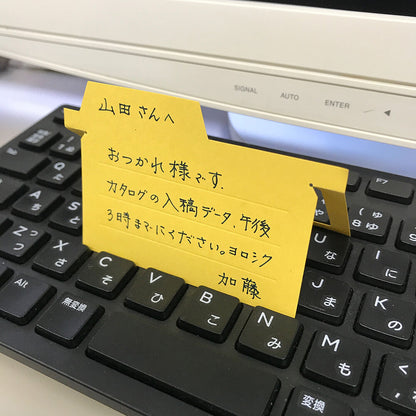 SIGNAL AUTO ENTER
山田さんへ
おつかれ様です.
カタログの入稿データ、午後
3時までにください。ヨロシク
加藤
F7
や ゆ ( 8 ゆ
U な I に
A ち S と
Z つ X さ
J ま K の
C そ V ひ B こ N み M も
Alt 無変換 変換